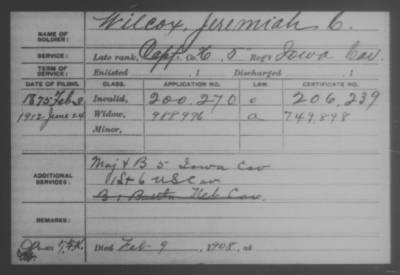 NAME OF SOLDIER: Wilcox, Jeremiah C.
SERVICE: Late rank, Capt. Co. K, 5 Reg't Iowa Cav.
TERM OF SERVICE: Enlisted , 1 Discharged , 1
DATE OF FILING. CLASS. APPLICATION NO. LAW. CERTIFICATE NO.
1875 Feb 8 Invalid, 200.270 206.239
1912 June 24 Widow, 988996 a 749.898
Minor,
ADDITIONAL SERVICES: Maj & B 5 Iowa Cav
1st & 6 U S Cav
B 1 Battn Neb Cav.
REMARKS:
Died Feb 9, 1908, at